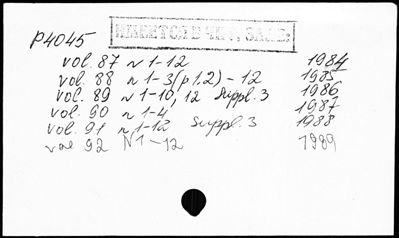 ИМЕЕТСЯ В ЧИТ. ЗАЛЕ:
P4045
vol. 87 N 1-12 1984
vol. 88 N 1-3(p1.2) - 12 1985
vol. 89 N 1-10, 12 Suppl. 3 1986
vol. 90 N 1-4 1987
vol. 91 N 1-12 Suppl. 3 1988
vol 92 N 1-12 1989